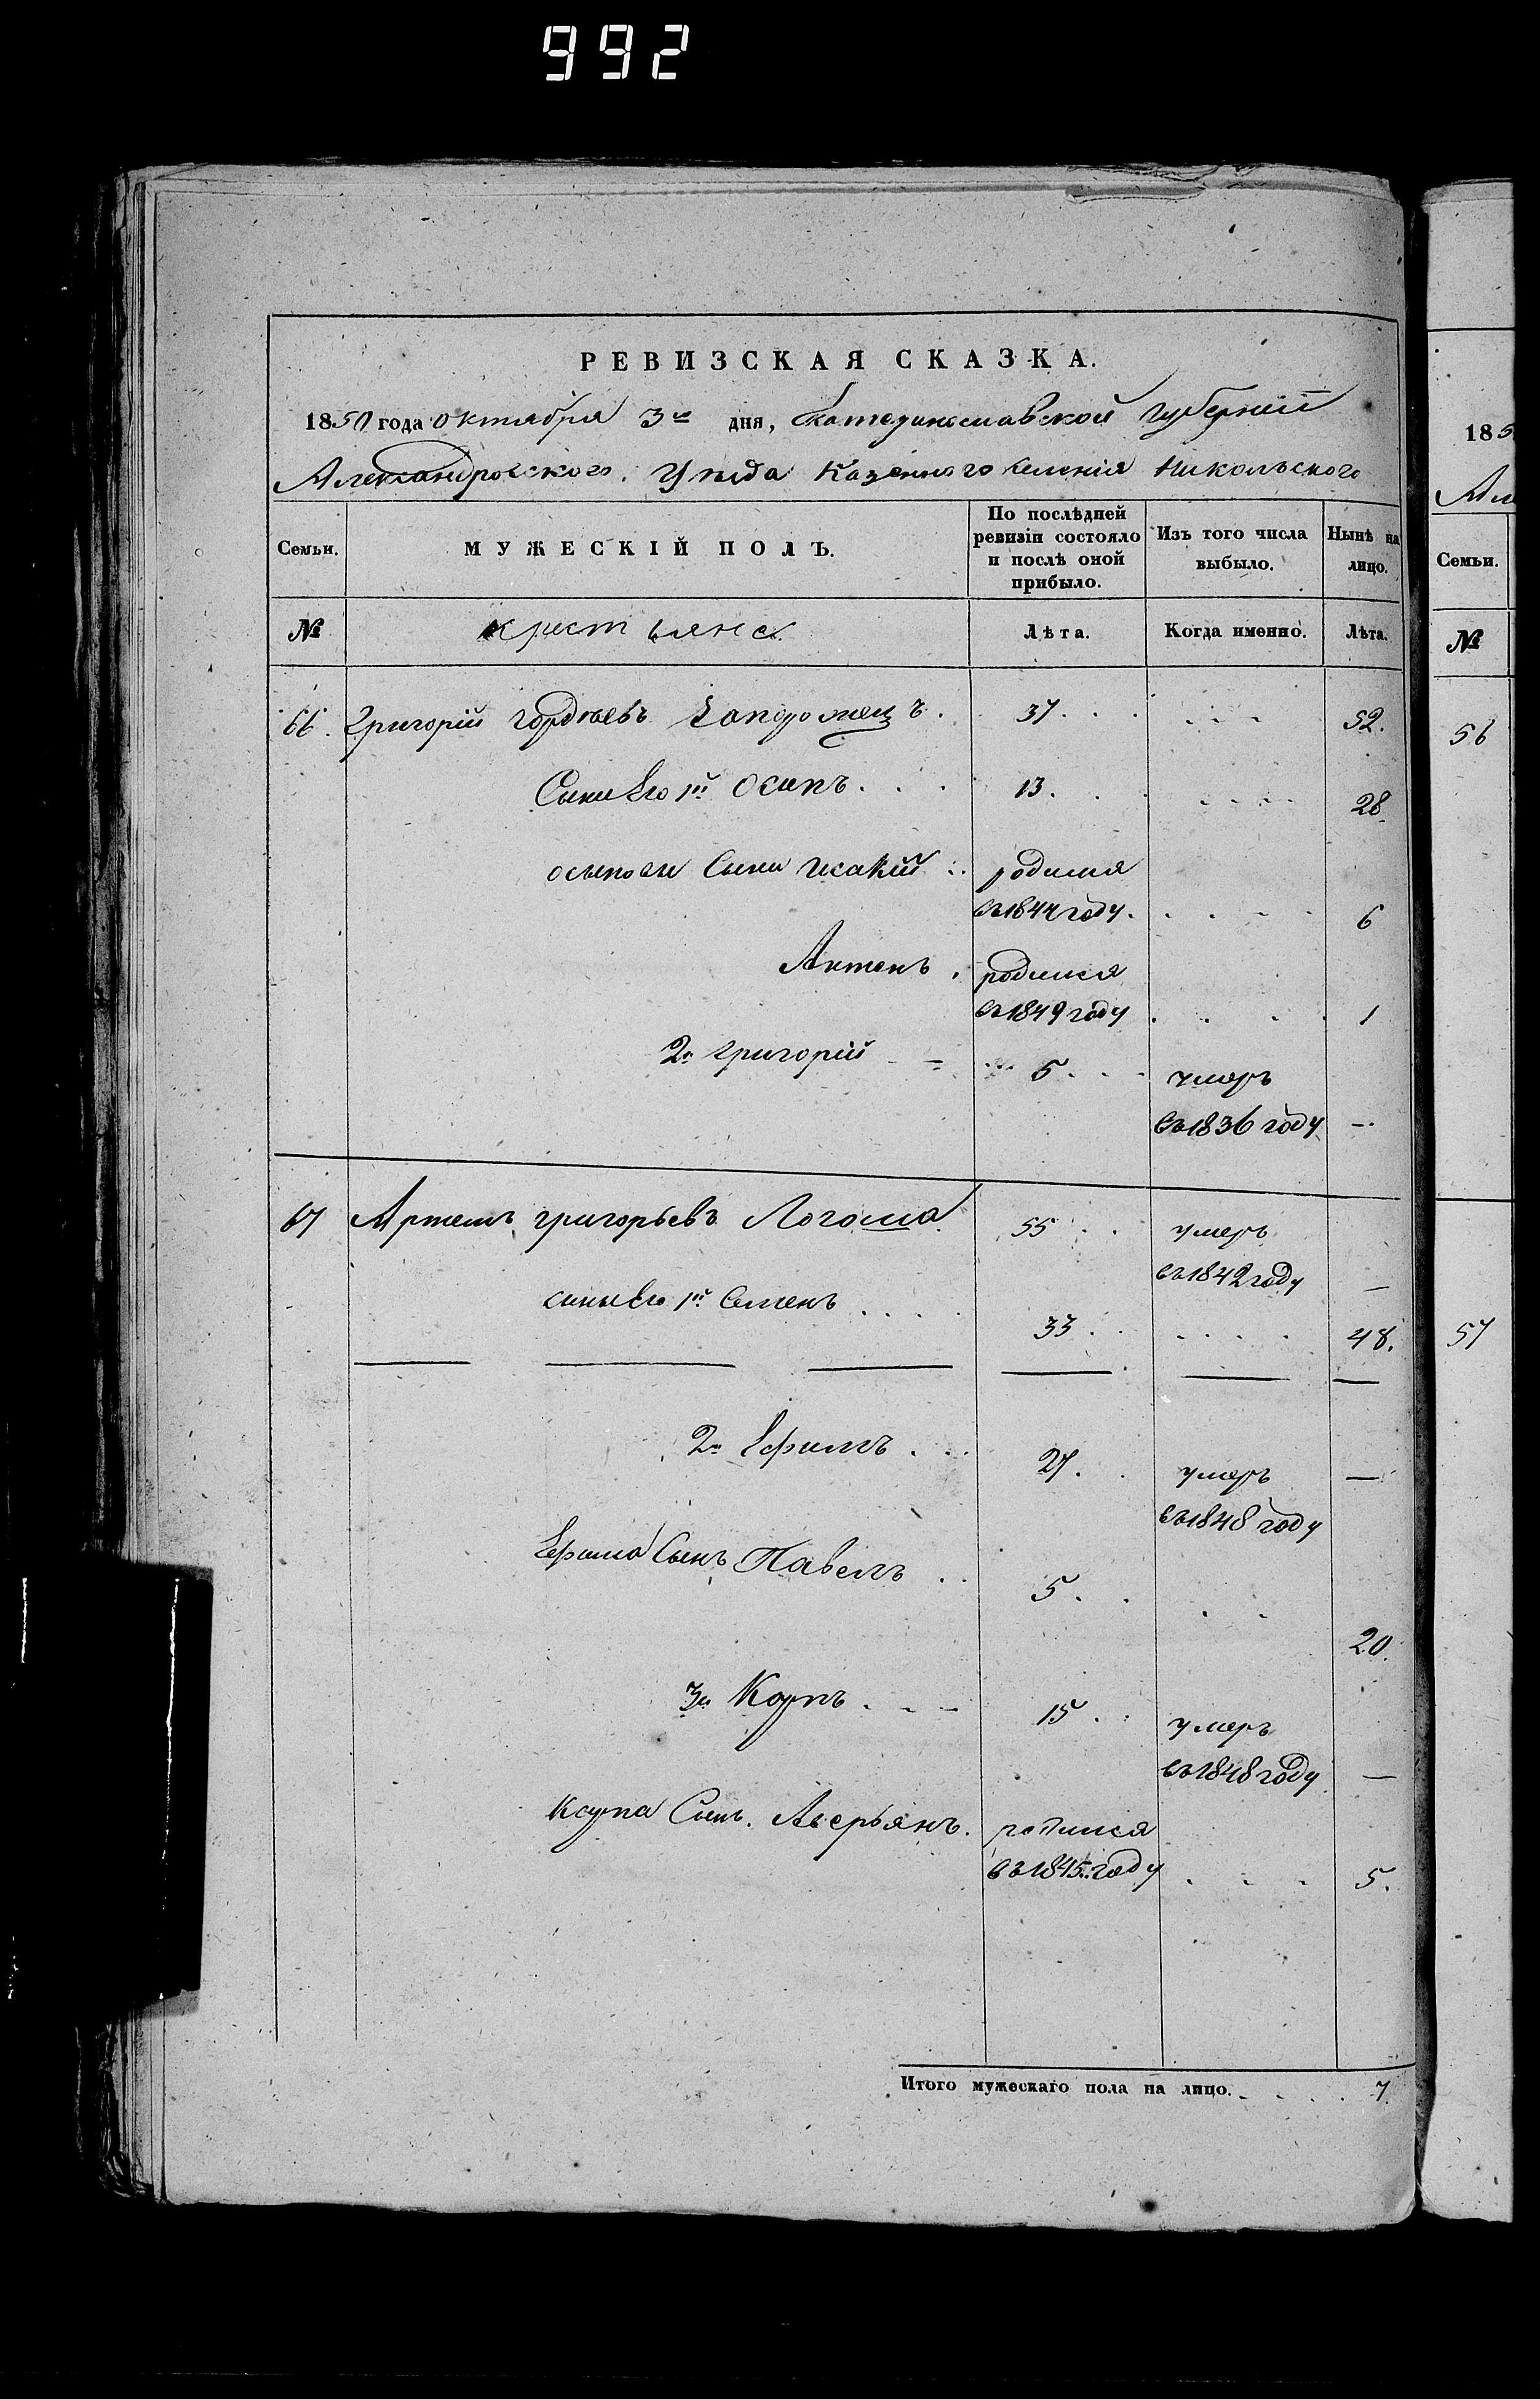 992
РЕВИЗСКАЯ СКАЗКА.
1850 года октября 3го дня, Екатеринославской Губернiи
Александровского Уезда Казенного селенiя Никольского
Семьи.
МУЖЕСКIЙ ПОЛЪ.
По послѣдней ревизiи состояло и послѣ оной прибыло.
Изъ того числа выбыло.
Нынѣ на лицо.
№
крестьяне
Лѣта.
Когда именно.
Лѣта.
66. Григорiй Гордѣевъ Запорожецъ. 37. 52.
Сыни Его 1й Осипъ. 13. 28.
осиповы Сыни Исакiй родился
въ 1844 году. 6
Антонъ. родился
въ 1849 году 1
2й Григорiй 5. умеръ
въ 1836 году —
67 Артемъ Григорьевъ Логома 55 умеръ
въ 1842 году —
сыны Его 1й Семенъ 33. 48.
2й Ефимъ. 27. умеръ —
въ 1848 году
Ефима Сынъ Павелъ 5. 20.
3й Карпъ 15. умеръ
въ 1848 году —
Карпа Сынъ. Аверьянъ. родился
въ 1845 году 5.
Итого мужескаго пола на лицо. 7.
185
Але
Семьи.
№
56
57